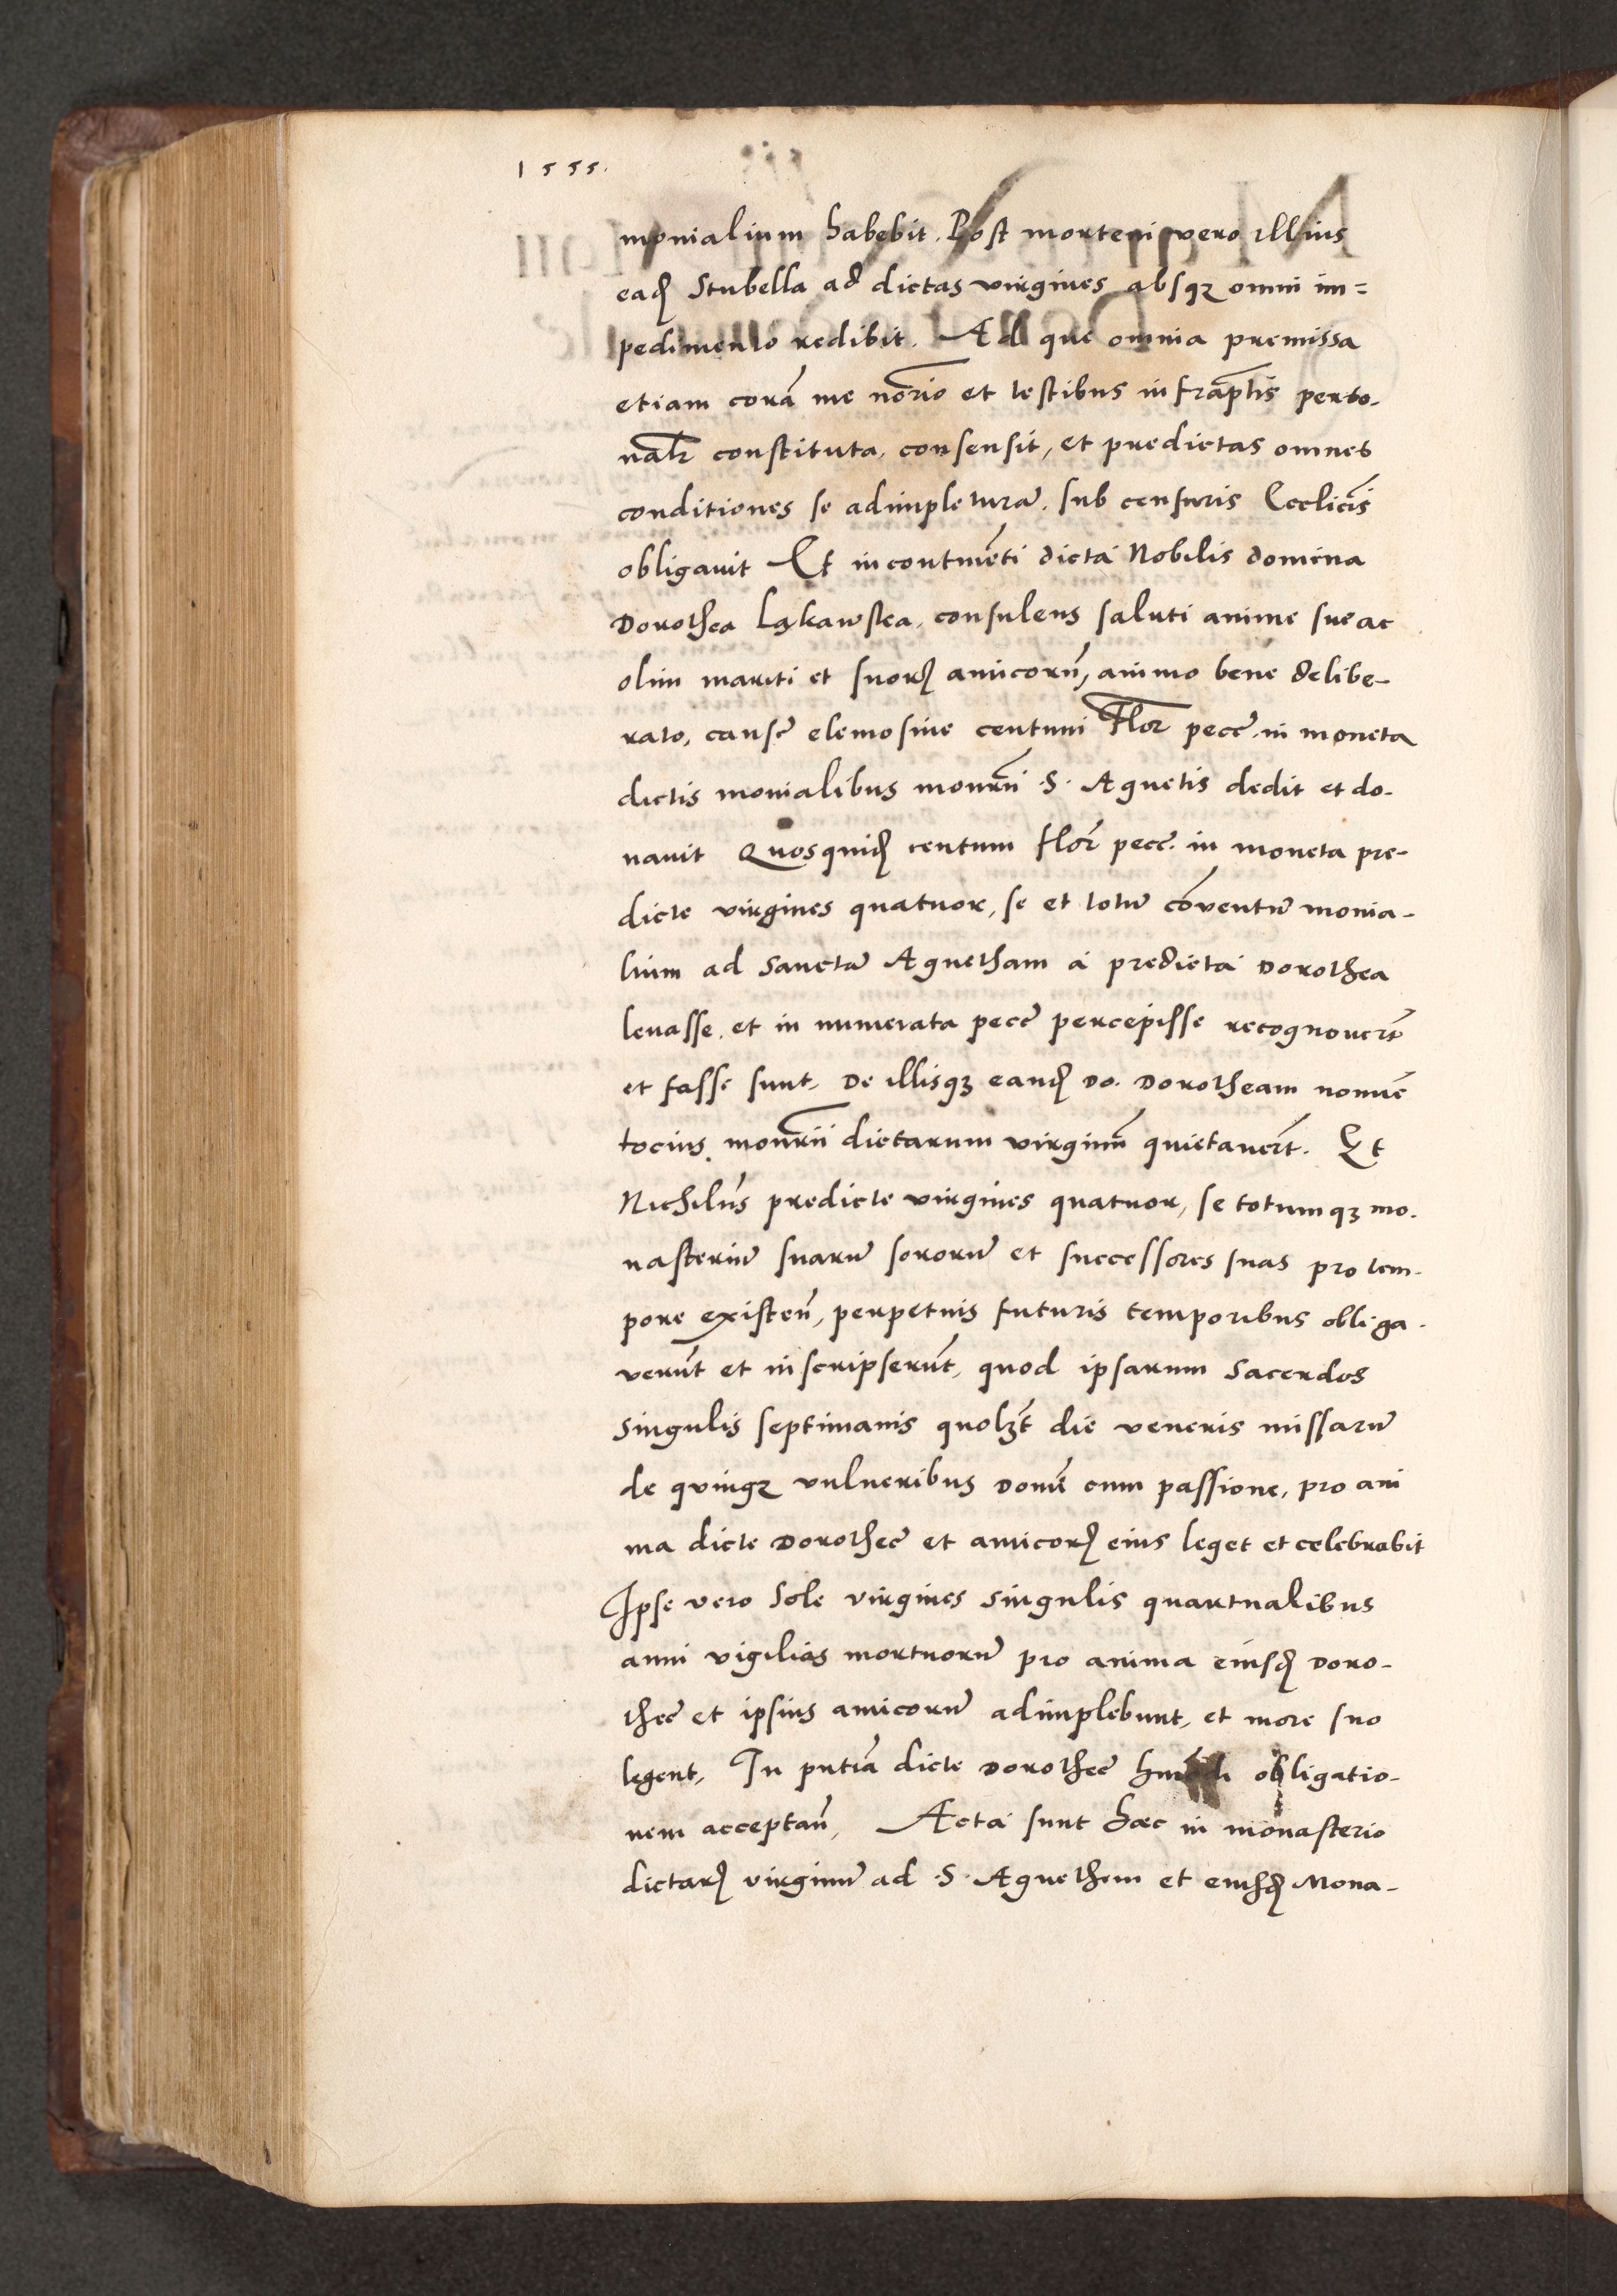 1555.
monialium habebit. Post mortem vero illius
eadꝫ Stubella ad dictas virgines absqꝫ omni im=
pedimento redibit. Ad que omnia premissa
etiam corā me nōrio et testibus infrāptis perso-
nalr̄ constituta, consensit, et predictas omnes
conditiones se adimpleturā, sub censuris Eccliciīs
obligavit Et incontinēti dicta Nobilis domina
Dorothea Łąkawska, consulens saluti anime sue ac
olim mariti et suorꝫ amicorū, animo bene delibe-
rato, causā elemosine centum Flor̄ pecc̄. in moneta
dictis monialibus monrīi .S. Agnetis dedit et do-
navit Quosquidꝫ centum flor̄ pecc̄. in moneta pre-
dicte virgines quatuor, se et totū cōventū monia-
lium ad Sanctā Agnetham à predicta Dorothea
levasse, et in numerata pecc̄ percepisse recognoverūt
et fasse sunt, De illisqꝫ eandꝫ Do. Dorotheam nomīe
tocius monrīi dictarum virginū quietaverūt. Et
Nichilūs predicte virgines quatuor, se totumqꝫ mo-
nasteriū suarū sororū et successores suas pro tem-
pore existēn, perpetuis futuris temporibus obliga-
verūt et inscripserūt, quod ipsarum Sacerdos
singulis septimanis quolꝫt die veneris missarū
de quinqꝫ vulneribus Domī cum passione, pro ani
ma dicte Dorotheē et amicorꝫ eius leget et celebrabit
Ipse vero Sole virgines singulis quartualibus
anni vigilias mortuorū pro anima eiusdꝫ Doro-
theē et ipsius amicorū adimplebunt, et more suo
legent, In pn̄tia dicte Dorotheē hmōdi obligatio-
nem acceptān, Acta sunt haec in monasterio
dictarꝫ virginū ad .S. Agnetham et eiusdꝫ Mona-